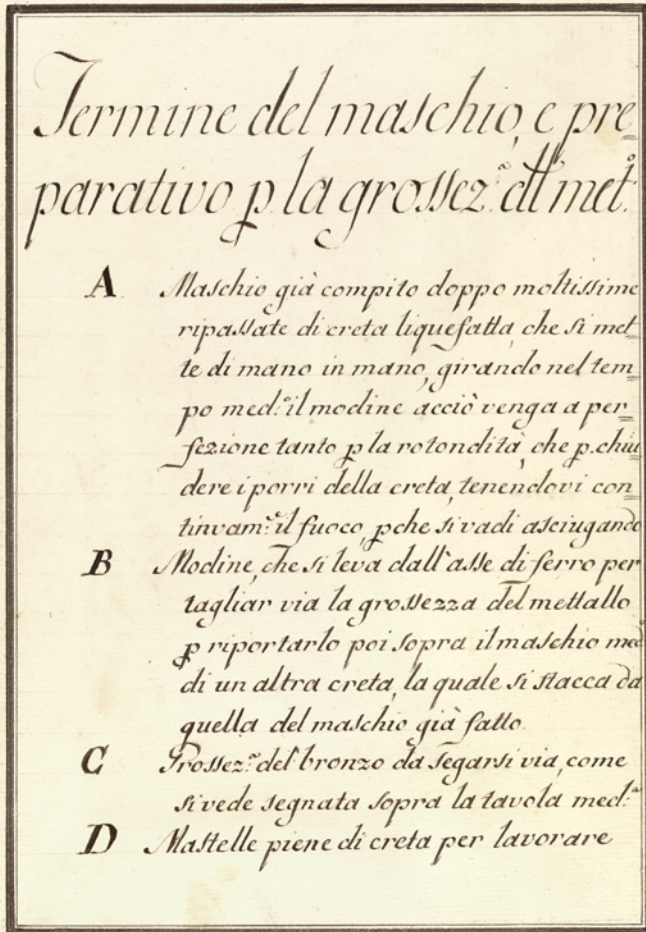 Termine del maschio, e pre=
parativo p la grossez.ᵃ dll met.º
A Maschio già compito doppo moltissime
ripassate di creta liquefatta, che si met=
te di mano in mano, girando nel tem=
po med.º il modine acciò venga a per=
fezione tanto p la rotondità, che p. chiu=
dere i porri della creta, tenendovi con=
tinvam.ᵉ il fuoco, pche si vadi asciugando
B Modine, che si leva dall'asse di ferro per
tagliar via la grossezza del mettallo
p riportarlo poi sopra il maschio med.
di un altra creta, la quale si stacca da
quella del maschio già fatto.
C Grossez.ᵃ del bronzo da segarsi via, come
si vede segnata sopra la tavola med.ᵃ
D Mastelle piene di creta per lavorare